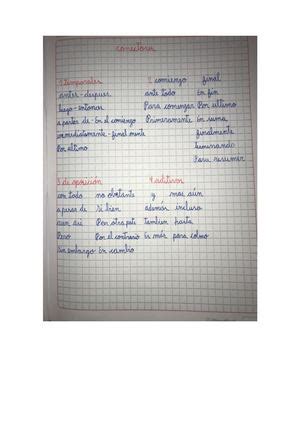 conectores
1 temporales
antes - despues
luego - entonces
a partir de - En el comienzo
inmediatamente - final mente
Por ultimo
2 comienzo final
ante todo En fin
Para comenzar Por ultimo
Primeramente En suma
finalmente
terminando
Para resumir
3 de oposición
con todo no obstante
a pesar de Si bien
aun asi Por otra parte
Pero Por el contrario
Sin embargo En cambio
4 aditivos
y mas aún
además incluso
tambien hasta
Es más para colmo